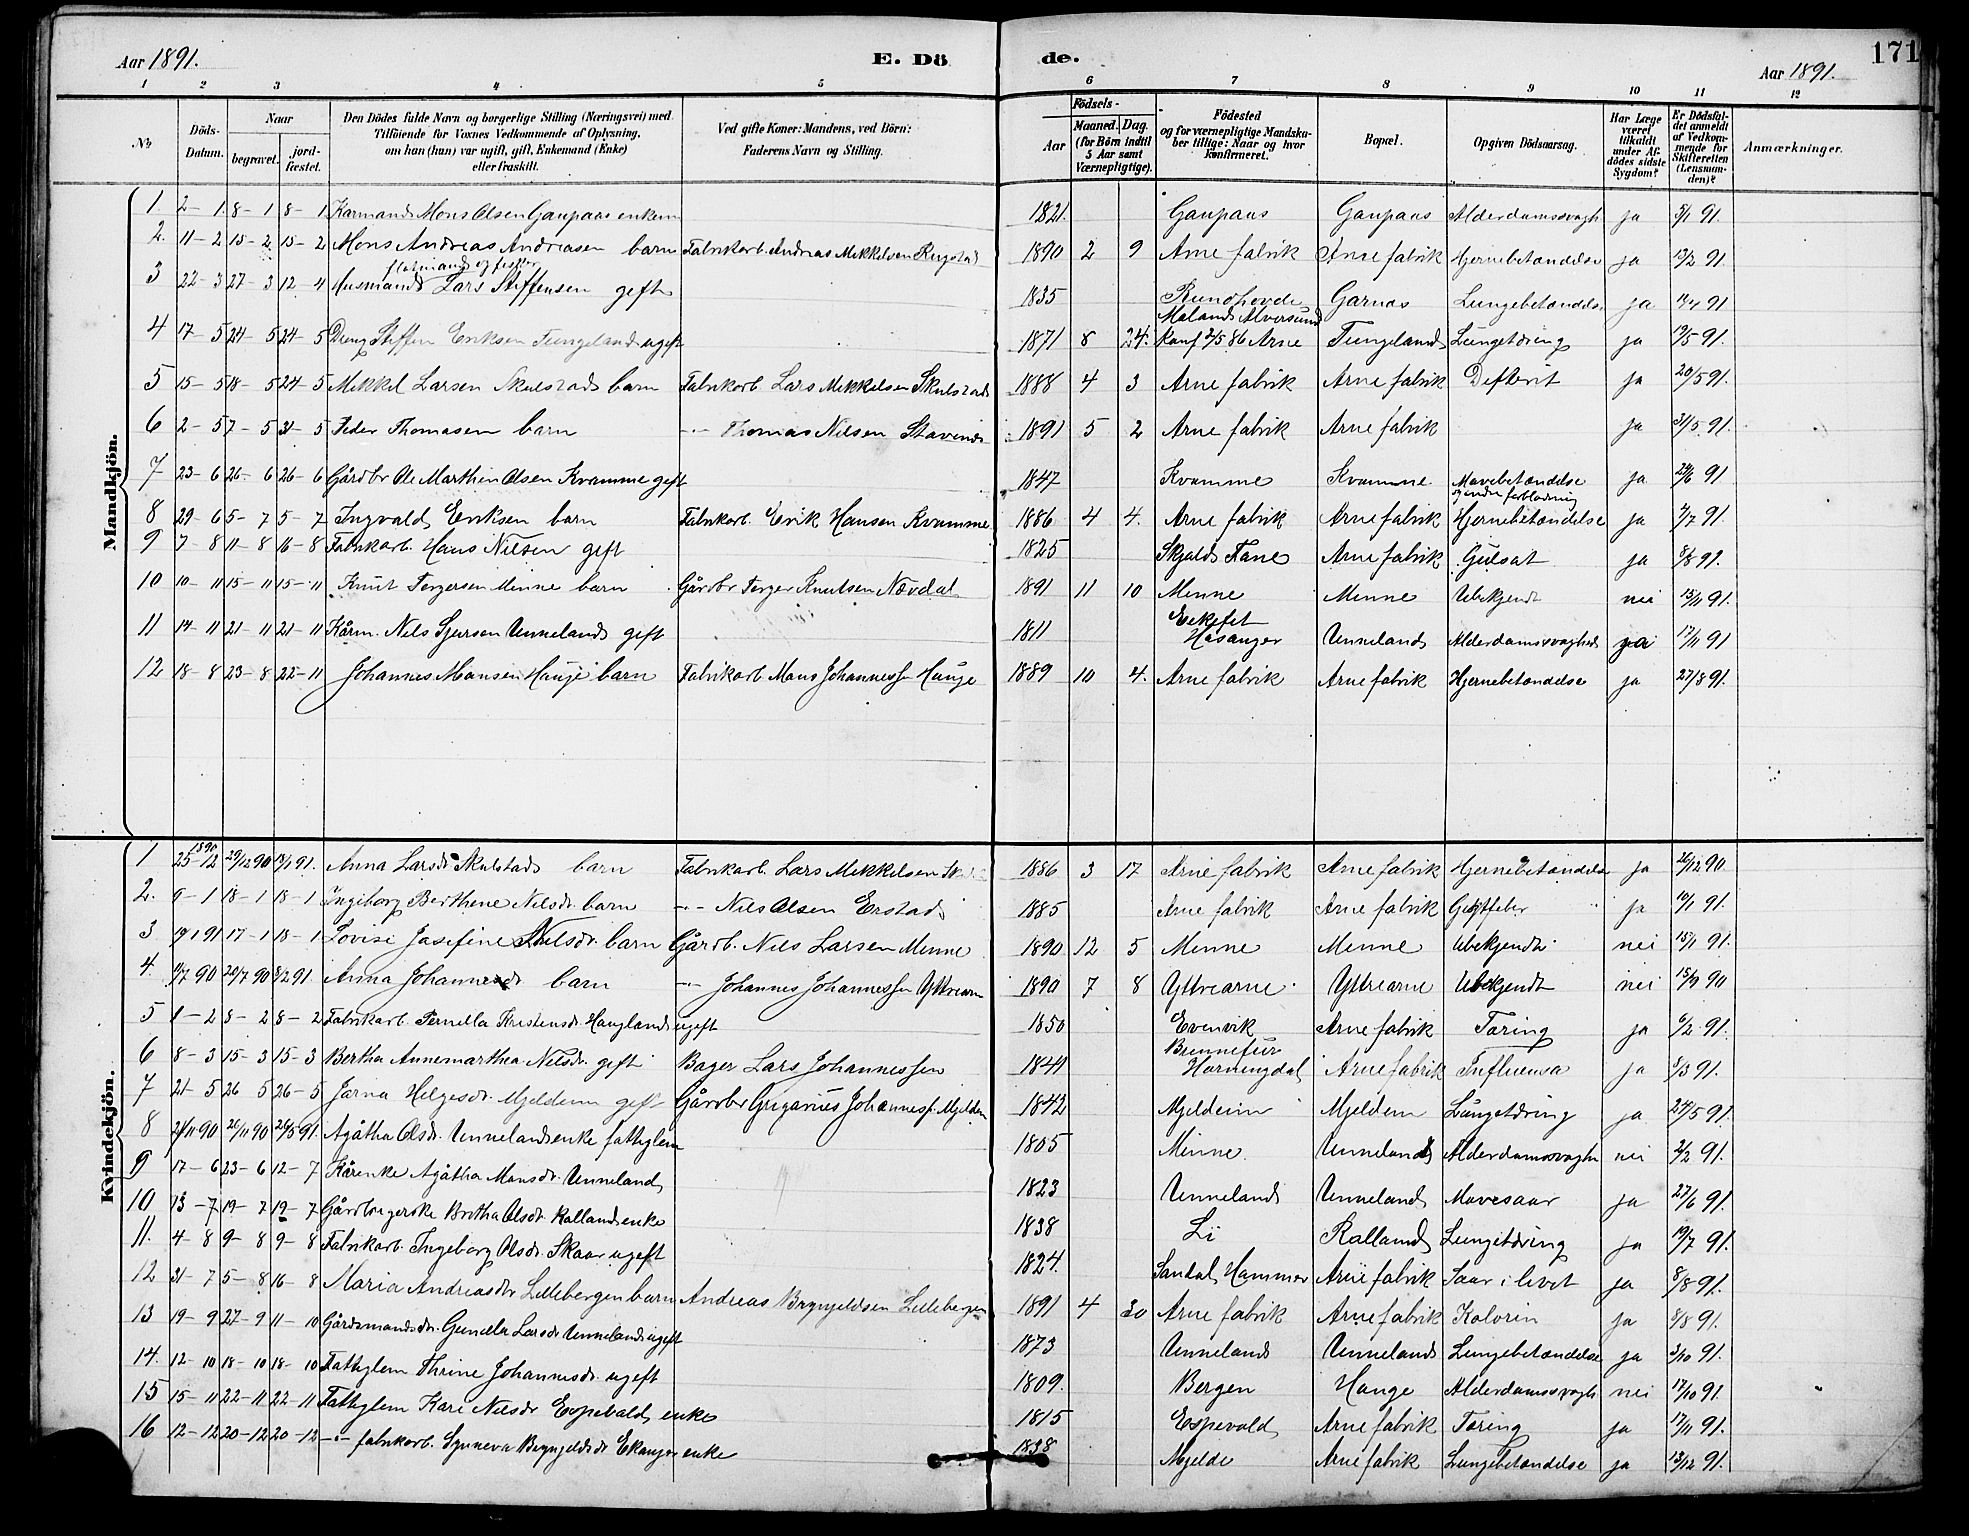 171
Aar 1891. E. Dö de. Aar 1891.
1 2 3 4 5 6 7 8 9 10 11 12
No Döds-Datum. Naar begravet. jord-fæstet. Den Dödes fulde Navn og borgerlige Stilling (Næringsvei) med Tilföiende for Voxnes Vedkommende af Oplysning, om han (hun) var ugift, gift, Enkemand (Enke) eller fraskilt. Ved gifte Koner: Mandens, ved Börn: Faderens Navn og Stilling. Födsels- Aar Maaned. Dag. (for Börn indtil 5 Aar samt Værnepligtige). Födested og for værnepligtige Mandskaber tillige: Naar og hvor konfirmeret. Bopæl. Opgiven Dödsaarsag. Har Læge været tilkaldt under Afdödes sidste Sygdom? Er Dödsfaldet anmeldt af Vedkommende for Skifteretten (Lensmanden)? Anmærkninger.
Mandkjön.
1 2-1 8-1 8-1 Karmand Mons Olsen Gaupaas enkem 1821. Gaupaas Gaupaas Alderdomssvagh ja 5/1 91.
2. 11-2 15-2 15-2 Mons Andreas Andreasen barn Fabrikarb. Andreas Mikkelsen Ringstad 1890 2 9 Arne fabrik Arne fabrik Hjernebetændelse ja 13/2 91.
3 22-3 27-3 12-4 Husmand Lars Steffensen geft 1835 Garnæs Lungebetændelse ja 91
4 17-5 24-5 24-5 Dreng Steffen Eriksen Tungeland ugeft 1871 8 24. Maland Alversund Konf 2/5 86 Arne Tungeland Lungetæring ja 19/5 91.
5 15-5 18-5 24-5 Mikkel Larsen Skulstad barn Fabrikarb. Lars Mikkelsen Skulstad 1888 4 3 Arne fabrik Arne fabrik Defterit ja 20/5 91.
6 2-5 7-5 31-5 Peder Thomasen barn -"- Thomas Nilsen Stavenes 1891 5 2 Arne fabrik Arne fabrik ja 31/5 91.
7 23-6 26-6 26-6 Gårdbr Ole Marthin Olsen Kvamme geft 1847 Kvamme Kvamme Mavebetændelse ja 91
8 29-6 5-7 5-7 Ingvald Eriksen barn Fabrikarb. Erik Hansen Kvamme 1886 4 4. Arne fabrik Arne fabrik Hjernebetændelse ja 7/7 91.
9 7-8 11-8 16-8 Fabrikarb. Hans Nilsen geft 1825 Skjold Fane Arne fabrik Gulsot ja 8/8 91.
10 10-11 15-11 15-11 Knut Torgersen Minne barn Gårdbr Torger Knutsen Nævdal 1891 11 10 Minne Minne Ubekjendt nei 15/11 91.
11 14-11 21-11 21-11 Kårm. Nils Sjursen Unneland geft 1811 Eekefet Hosanger Unneland Alderdomssvaghed 17/11 91
12 18-8 23-8 22-11 Johannes Monsen Hauge barn Fabrikarb Mons Johannessen Hauge 1889 10 4. Arne fabrik Arne fabrik Hjernebetændelse ja 27/8 91.
Kvindekjön.
1 1890 25-12 29/12 90 91. Anna Larsdr Skulstad barn Fabrikarb. Lars Mikkelsen 1886 3 17 Arne fabrik Arne fabrik Hjernebetændelse ja 26/12 90.
2. 9-1 18-1 18-1 Ingeborg Berthene Nilsdr. barn -"- Nils Olsen Erstad 1885 Arne fabrik Arne fabrik Gigtfeber ja 10/1 91.
3 91 17-1 18-1 Lovise Josefine Nilsdr. barn Gårdb. Nils Larsen Minne 1890 12 5 Minne Minne Ubekjendt nei 15/1 91.
4. 90 20/7 90 8/2 91. Anna Johannesdr barn -"- Johannes Johannessen Yttrearne 1890 7 8 Yttrearne Yttrearne Ubekjendt nei 90
5 1-2 8-2 8-2 Fabrikarb. Pernella Kristensdr. Haugland ugeft 1850 Evenvik Arne fabrik Tæring ja 6/2 91.
6 8-3 15-3 15-3 Bertha Annemartha Nilsdr. geft Bager Lars Johannessen 1844 Horningdal Arne fabrik Influensa ja 8/3 91.
7 21-5 26 5 26-5 Jorna Helgesdr. Mjeldeim geft Gårdbr Grigarius Johannesen Mjeldem 1842 Mjeldeim Mjeldem Lungetæring ja 24/5 91.
8 21/11 90 26/11 90 91. Agåtha Olsdr. Unneland enke fattiglem 1805 Minne. Unneland Alderdomssvagh nei 91.
9 17-6 23-6 12-7 Kårenke Agåtha Monsdr. Unneland 1823 Unneland Unneland Mavesaar ja 27/6 91.
10 13-7 19-7 19-7 Gårdbrugerske Britha Olsdr. Rolland enke 1838 Li Rolland Lungetæring ja 19/7 91.
11. 4-8 9-8 9-8 Fabrikarb. Ingeborg Olsdr. Skaar ugeft 1824. Sandal, Hammer Arne fabrik Saar i livet ja 8/8 91.
12 31-7 5-8 16-8 Maria Andreasdtr Lillebergen barn Andreas Brynjeldsen Lillebergen 1891 4 30 Arne fabrik Arne fabrik Kolorin ja 8/8 91.
13 19-9 27-9 11-10 Gårdsmandsdr. Gunilla Larsdr Unneland ugeft 1873 Unneland Unneland Lungebetændelse ja 3/10 91.
14. 12-10 18-10 18-10 Fattiglem Thrine Johannesdr. ugeft 1809. Bergen Hauge Alderdomssvagh nei 17/10 91.
15 15-11 22-11 22-11 Fattiglem Kari Nilsdr Espevold enke 1815 Espevold Arne fabrik Tæring ja 17/11 91.
16 12-12 20-12 20-12 -"- fabrikarb. Synneva Brynjeldsdr Ekanger enke 1838 Mjelde Arne fabrik Lungebetændelse ja 13/12 91.